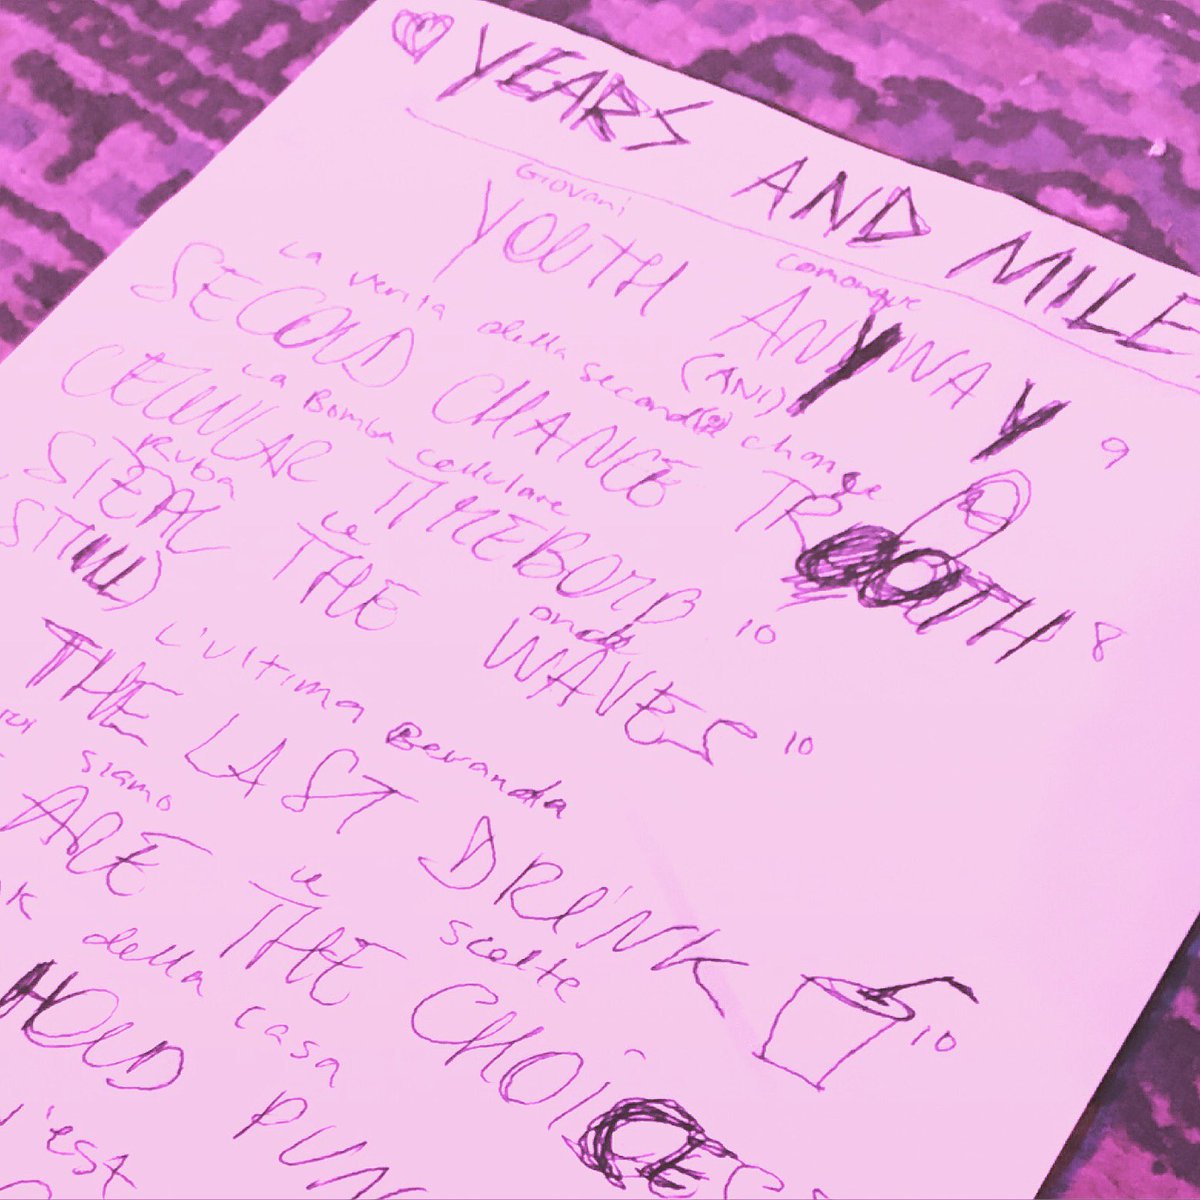 YEARS AND MILE
Giovani comonque
YOUTH ANYWAY 9
(ANI)
La verita della second chance
SECOND CHANCE TROOTH 8
La Bomba cellulare
CELLULAR TIMEBOMB 10
Ruba le onde
STEAL THE WAVES 10
STILL)
L'ultima Bevanda
THE LAST DRINK 10
siamo le scelte
ARE THE CHOICES
della casa
HOLD PUN
l'est